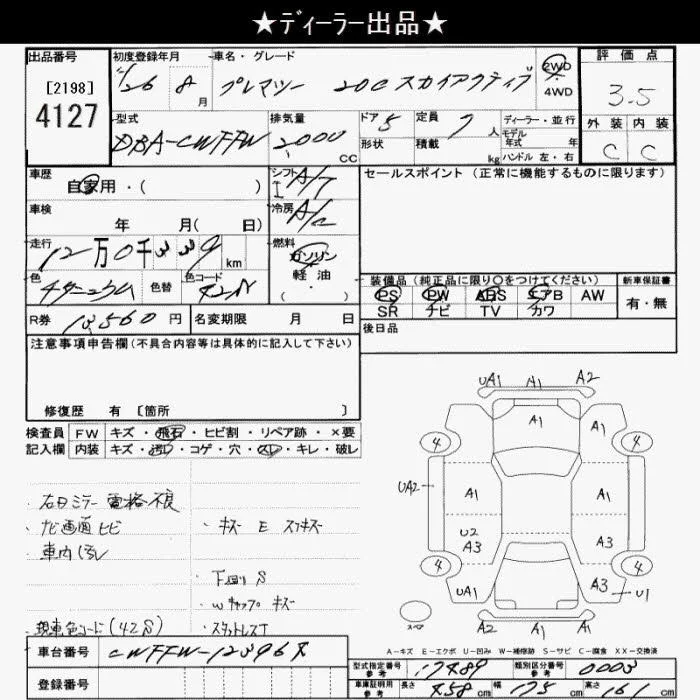 ★ディーラー出品★
出品番号
[2198]
4127
初度登録年月
26 8 月
車名・グレード
プレマシー 20C スカイアクティブ
2WD
4WD
評価点
3.5
外装 内装
C C
型式
DBA-CWFFW
排気量
2000 CC
ドア 5
形状
定員 7 人
積載 kg
ディーラー・並行
モデル
年式 年
ハンドル 左・右
車歴
自家用・( )
シフト
A/T
セールスポイント (正常に機能するものに限ります)
車検
年 月( 日)
冷房
A/C
走行
12万0千339 km
燃料
ガソリン
軽油
( ・ )
色
チタニウム
色替
色コード
42N
装備品 (純正品に限り○をつけてください)
PS PW ABS エアB AW
SR ナビ TV カワ
新車保証書
有・無
R券 13560 円
名変期限 月 日
後日品
注意事項申告欄 (不具合内容等は具体的に記入して下さい)
修復歴 有 [箇所 ]
検査員
記入欄
FW キズ・飛石・ヒビ割・リペア跡・×要
内装 キズ・汚レ・コゲ・穴・スレ・キレ・破レ
・右日ミラー電格不良
・ナビ画面ヒビ
・車内汚レ
・キズ E スリキズ
・下回り S
・Wキャップ キズ
・スタットレスT
現車色コード(42S)
UA1 A1 A2
A1
4 A1 A1 4
UA2 A1 A1
U2
A3 A3
4 UA1 A3 4
U1
A2 A1 A1
スペア
A-キズ E-エクボ U-凹み W-補修跡 S-サビ C-腐食 XX-交換済
車台番号
登録番号
型式指定番号
参考
17489
類別区分番号
参考
0003
車庫証明用
参考
長さ 458 cm 幅 175 cm 高さ 161 cm